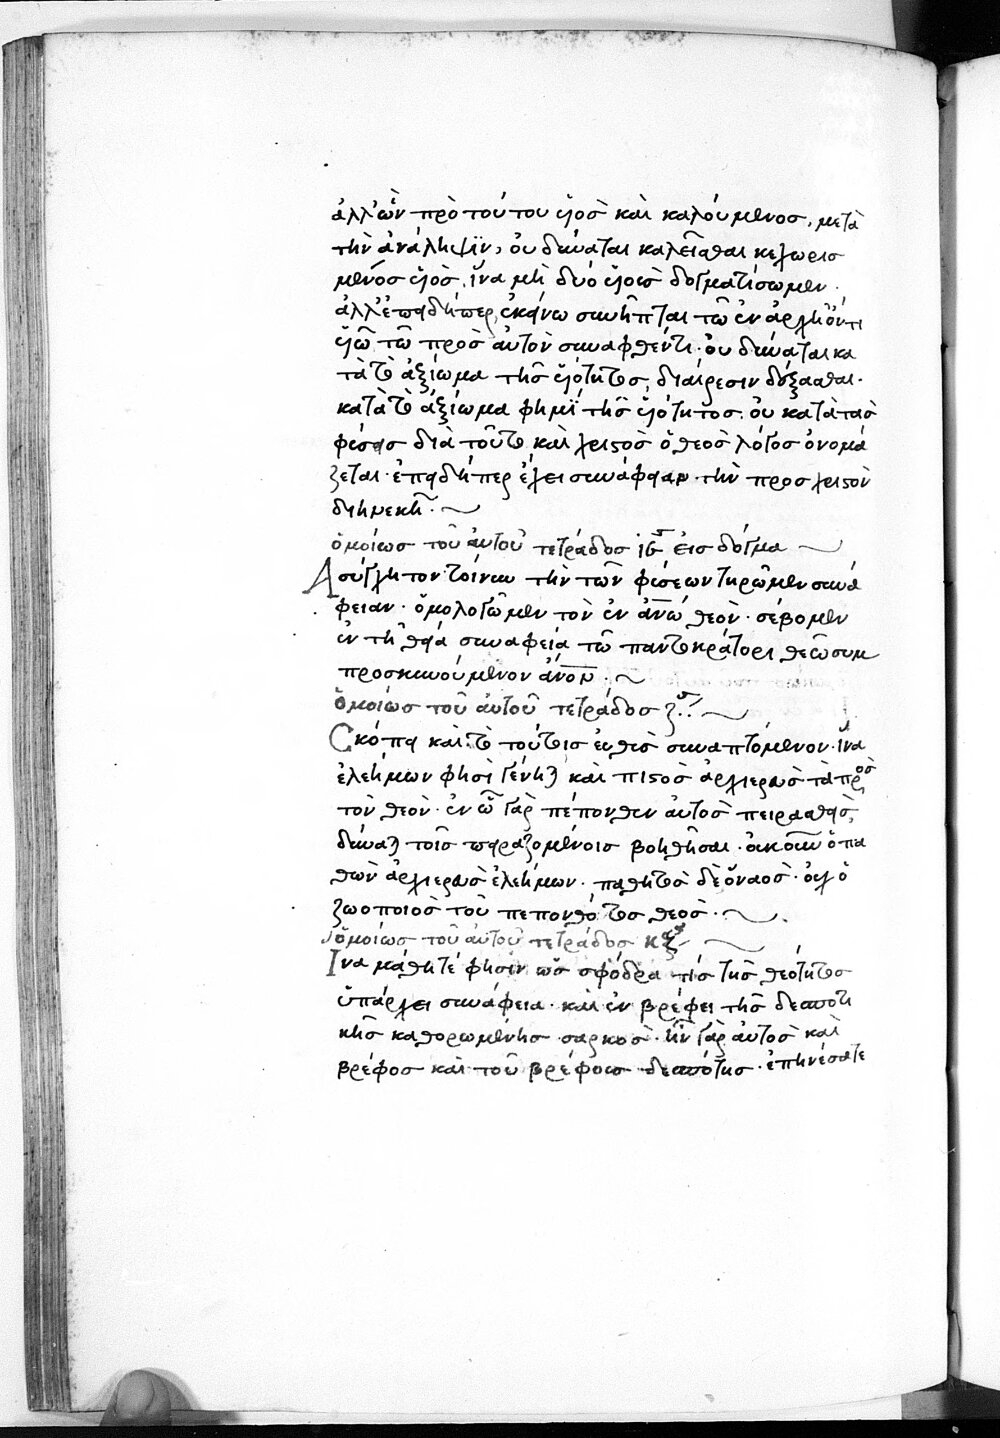 ἀλλ' ὢν πρὸ τούτου υἱὸσ καὶ καλούμενοσ, μετὰ
τὴν ἀνάληψϊν, οὐ δύναται καλεῖσθαι κεχωρισ
μένοσ υἱὸσ, ἵνα μὴ δύο υἱοὺσ δογματίσωμεν.
ἀλλ' ἐπειδήπερ ἐκείνω συνῆπται τῶ ἐν ἀρχῆ ὄντι
υἱῶ τῶ πρὸσ αὐτὸν συναφθέντι. οὐ δύναται κα
τὰ τὸ ἀξίωμα τῆσ υἱότητοσ, διαίρεσιν δέξασθαι.
κατὰ τὸ ἀξίωμα φημῒ τῆσ υἱότητοσ. οὐ κατὰ τὰσ
φύσεισ διὰ τοῦτο καὶ χριστὸσ ὁ θεὸσ λόγοσ ὀνομά
ζεται. ἐπειδήπερ ἔχει συνάφειαν τὴν πρὸσ χριστὸν
διηνεκῆ.
ὁμοίωσ τοῦ αὐτοῦ τετράδοσ ιϛ εἰσ δόγμα
Ἀσύγχητον τοίνυν τὴν τῶν φύσεων τηρῶμεν συνά
φειαν. ὁμολογῶμεν τὸν ἐν ἀνω θεὸν. σέβομεν
ἐν τῆ θεία συναφεία τῶ παντοκράτορι θεῶ συμ
προσκυνούμενον ἀνον.
ὁμοίωσ τοῦ αὐτοῦ τετράδοσ ζ
Σκόπει καὶ τὸ τούτοισ εὐθὺσ συναπτόμενον. ἵνα
ἐλεήμων φησὶ γένηται καὶ πιστὸσ ἀρχιερεὺσ τὰ πρὸσ
τὸν θεὸν. ἐν ὧ γὰρ πέπονθεν αὐτὸσ πειρασθεὶσ,
δύναται τοῖσ πειραζομένοισ βοηθῆσαι. οὐκοῦν ὁ πα
θὼν ἀρχιερεὺσ ἐλεήμων. παθητὸσ δὲ ὁ ναὸσ. οὐχ ὁ
ζωοποιὸσ τοῦ πεπονθότοσ θεὸσ.
ὁμοίωσ τοῦ αὐτοῦ τετράδοσ κζ
Ἵνα μάθητέ φησὶν ὡσ σφόδρα τίσ τῆσ θεότητοσ
ὑπάρχει συνάφεια. καὶ ἐν βρέφει τῆσ δεσποτι
κῆσ καθορωμένησ σαρκὸσ. ἦν γὰρ αὐτὸσ καὶ
βρέφοσ καὶ τοῦ βρέφουσ δεσπότησ. ἐπηνέσατε